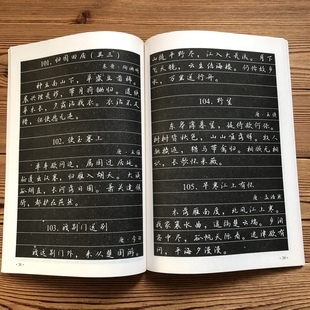 101. 归园田居（其三）
东晋·陶渊明
种豆南山下，草盛豆苗稀。
晨兴理荒秽，带月荷锄归。道狭
草木长，夕露沾我衣。衣沾不足
惜，但使愿无违。
102. 使至塞上
唐·王维
单车欲问边，属国过居延。
征蓬出汉塞，归雁入胡天。大漠
孤烟直，长河落日圆。萧关逢候
骑，都护在燕然。
103. 渡荆门送别
唐·李白
渡远荆门外，来从楚国游。
山随平野尽，江入大荒流。月下
飞天镜，云生结海楼。仍怜故乡
水，万里送行舟。
104. 野望
唐·王绩
东皋薄暮望，徙倚欲何依。
树树皆秋色，山山唯落晖。牧人
驱犊返，猎马带禽归。相顾无相
识，长歌怀采薇。
105. 早寒江上有怀
唐·孟浩然
木落雁南度，北风江上寒。
我家襄水曲，遥隔楚云端。乡泪
客中尽，孤帆天际看。迷津欲有
问，平海夕漫漫。